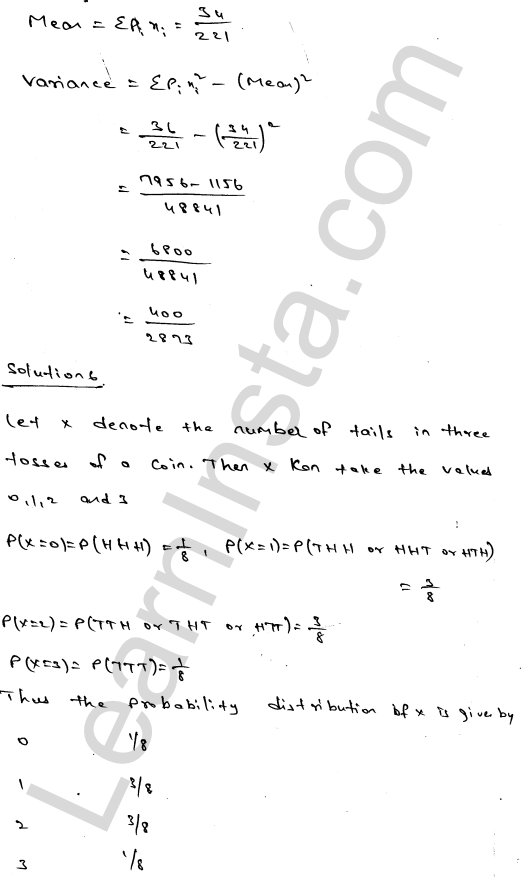 Mean = ΣPᵢ xᵢ = 34/221
Variance = ΣPᵢ xᵢ² - (Mean)²
= 36/221 - (34/221)²
= 7956 - 1156 / 48841
= 6800/48841
= 400/2873
Solution 6
Let x denote the number of tails in three
tosses of a coin. Then x Kan take the values
0, 1, 2 and 3
P(x=0) = P(HHH) = 1/8, P(x=1) = P(THH or HHT or HTH)
= 3/8
P(x=2) = P(TTH or THT or HTT) = 3/8
P(x=3) = P(TTT) = 1/8
Thus the probability distribution of x is give by
0 1/8
1 3/8
2 3/8
3 1/8
LearnInsta.com